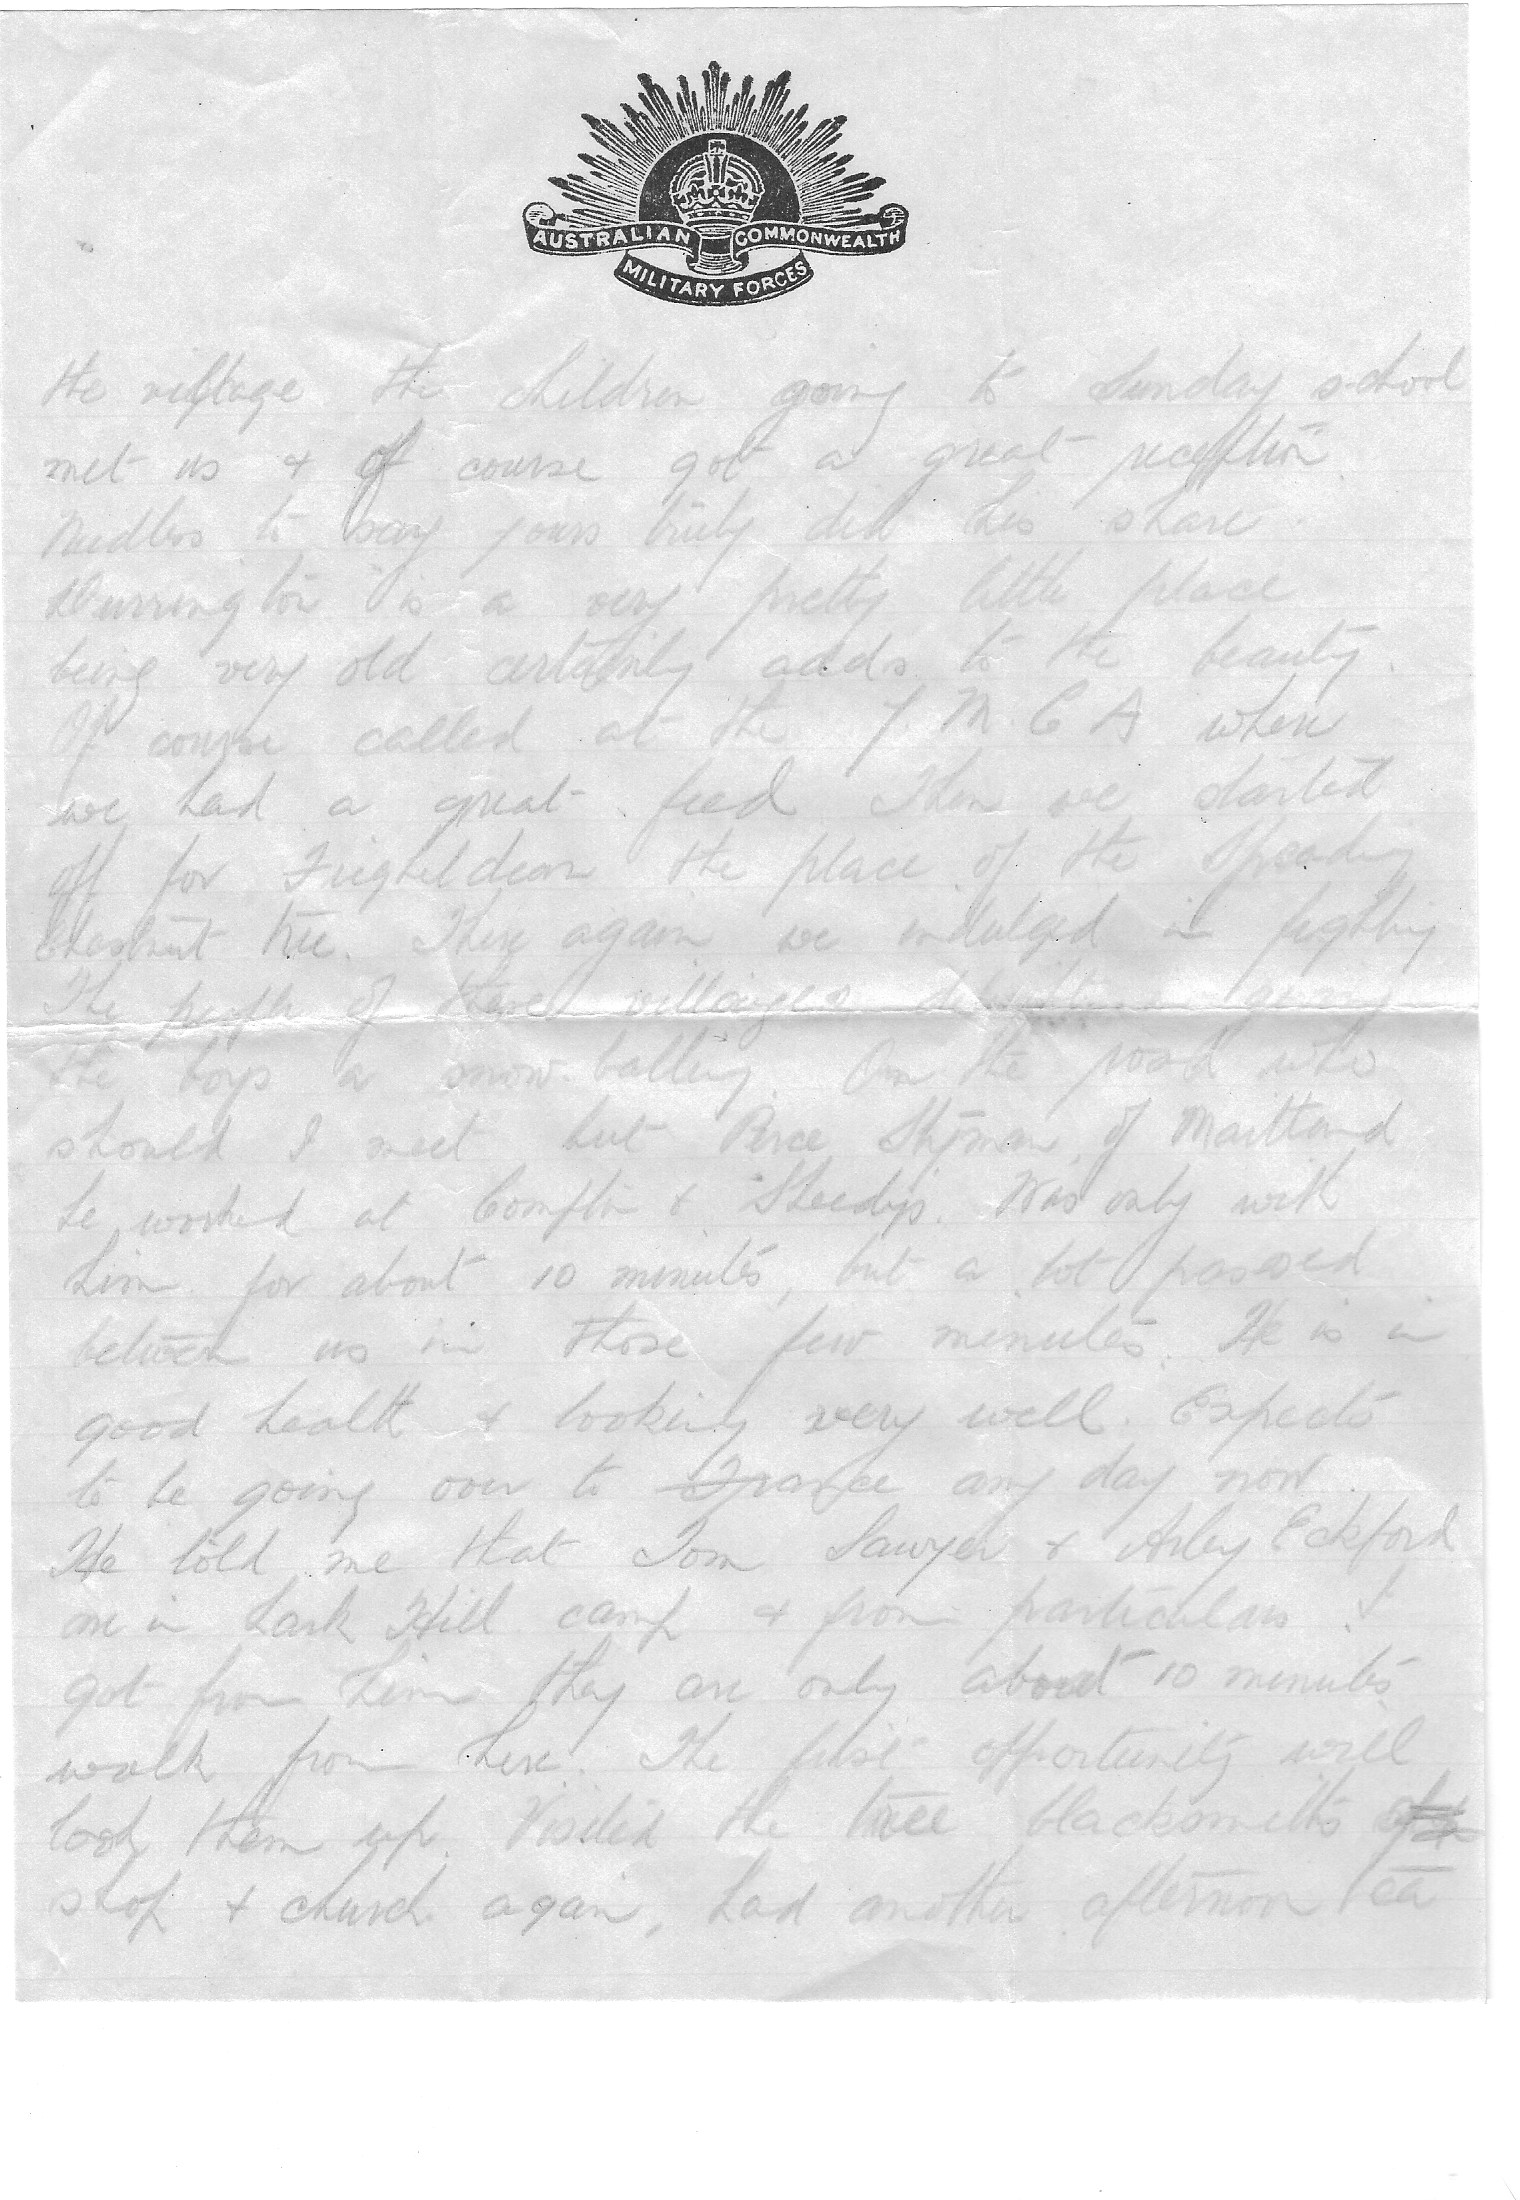 AUSTRALIAN COMMONWEALTH
MILITARY FORCES
the village the children going to Sunday school
met us & of course got a great reception
Needless to say yours truly did his share.
Durrington is a very pretty little place
being very old certainly adds to the beauty.
Of course called at the Y.M.C.A where
we had a great feed. Then we started
off for Figheldean the place of the Spreading
Chestnut tree. There again we indulged in fighting
The people of these villages delight in giving
the boys a snow-balling. On the road who
should I meet but Perce of Maitland
he worked at & Sheedys. Was only with
him for about 10 minutes, but a lot passed
between us in those few minutes. He is in
good health & looking very well. Expects
to be going over to France any day now.
He told me that Tom Sawyer & Arley Eckford
are in Lark Hill camp & from particulars I
got from him they are only about 10 minutes
walk from here. The first opportunity will
look them up. Visited the tree blacksmiths
shop & church again, had another afternoon tea